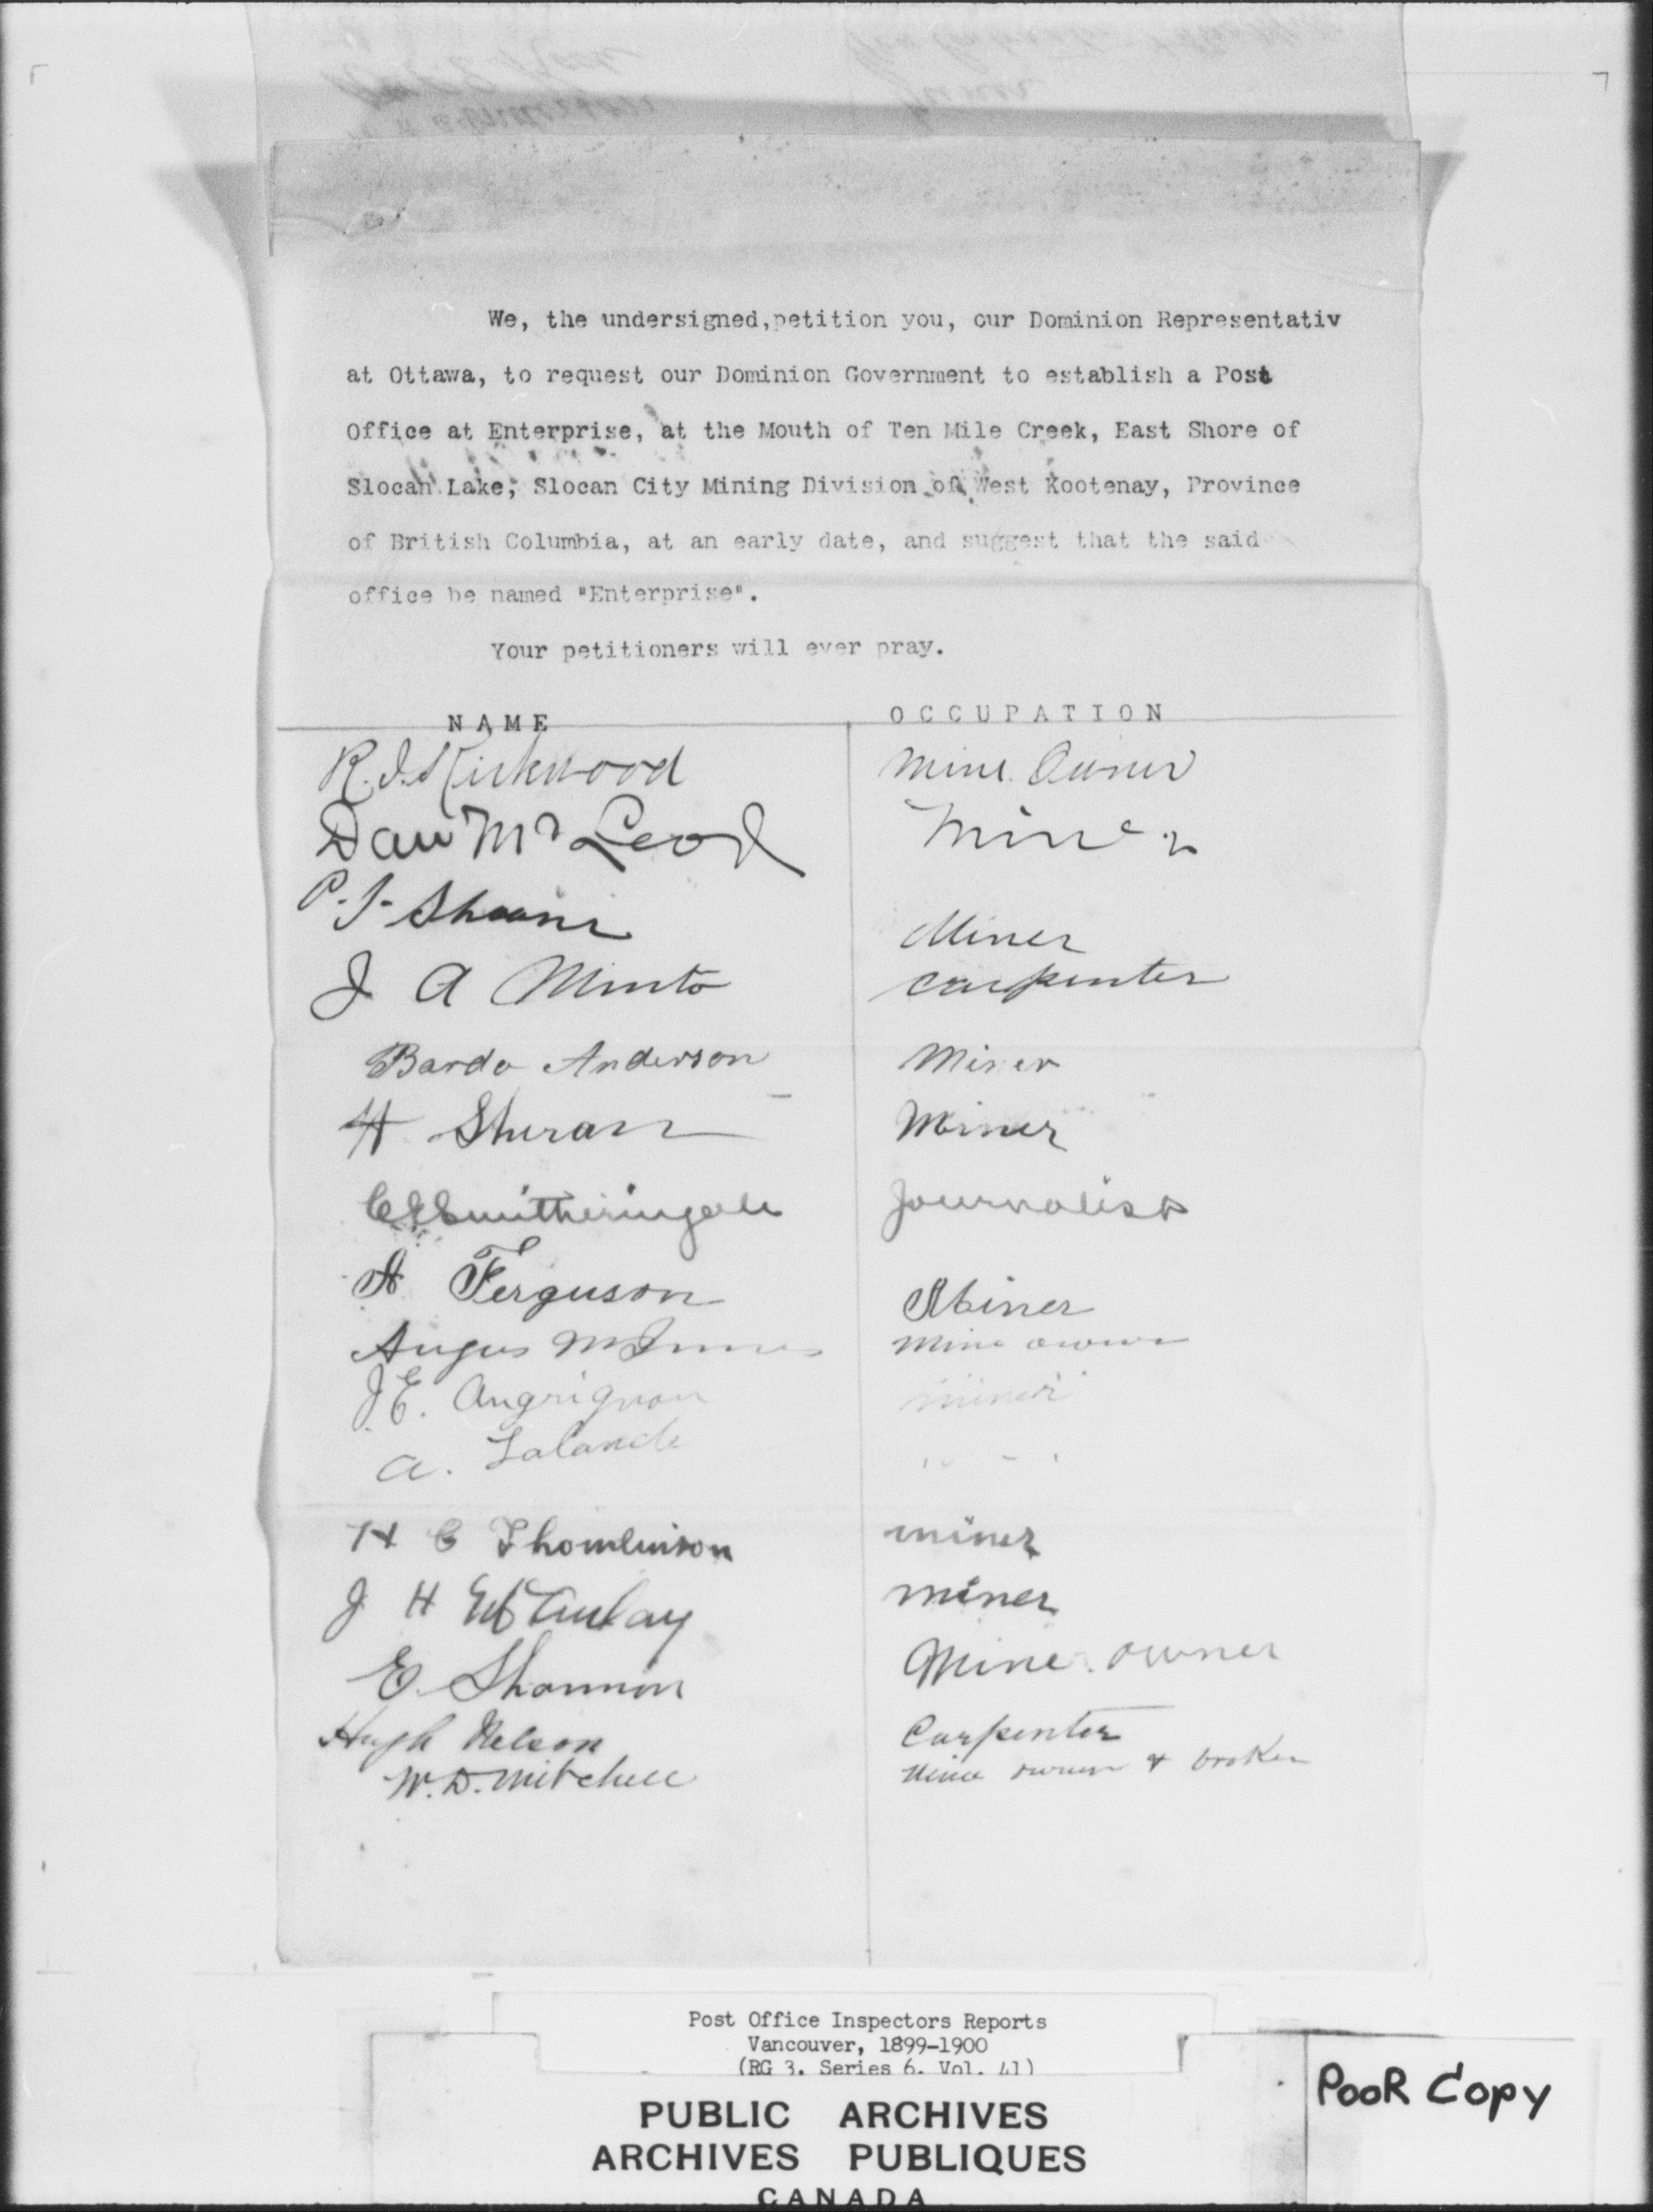 We, the undersigned,petition you, our Dominion Representativ
at Ottawa, to request our Dominion Government to establish a Post
Office at Enterprise, at the Mouth of Ten Mile Creek, East Shore of
Slocan Lake, Slocan City Mining Division of West Kootenay, Province
of British Columbia, at an early date, and suggest that the said
office be named "Enterprise".
Your petitioners will ever pray.
NAME OCCUPATION
R. I. Kirkwood Mine Owner
Dan McLeod Miner
P. J. Miner
J A Minto Carpenter
Bardo Anderson Miner
H Sheran Miner
C E Smitheringale Journalist
A Ferguson Miner
Angus McInnes Mine owner
J.E. Angrignon miner
a. Lalande
H C Thomlinson miner
J H McAulay miner
E. Shannon Mine owner
Hugh Nelson Carpenter
W. D. Mitchell Mine owner & broker
Post Office Inspectors Reports
Vancouver, 1899-1900
(RG 3. Series 6. Vol. 41)
PUBLIC ARCHIVES
ARCHIVES PUBLIQUES
CANADA
POOR COPY